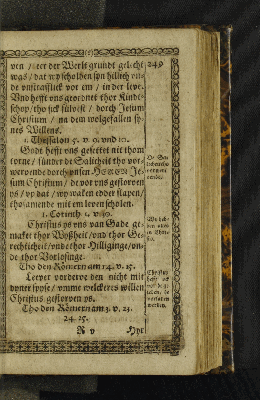 ven / eer der Werlt grundt gelecht
was / dat wy scholden syn hillich vn-
de vnstrafflick vor em / in der leve.
Vnd hefft vns geordnet thor Kindt-
schop / tho sick sülvest / dorch Jesum
Christum / na dem wolgefallen sy-
nes Willens.
1. Thessalon 5. v. 9. vnd 10.
Godt hefft vns gesettet nit thom
torne / sünder de Salicheit tho vor-
wervende dorch vnsen HEREN Je-
sum Christum / de vor vns gestorven
ys / vp dat / wy waken edder slapen /
tho samende mit em leven scholen.
1. Corinth 1. v. 30.
Christus ys vns van Gade ge-
maket thor Wyßheit / vnd thor Ge-
rechticheit / vnde thor Hilliginge / vn-
de thor Vorlösinge.
Tho den Römern am 14. v. 15.
Leever vorderve den nicht mit
dyner spyse / vmme welckeres willen
Christus gestorven ys.
Tho den Römern am 3. v. 23.
24. 25.
R v
249
Christus